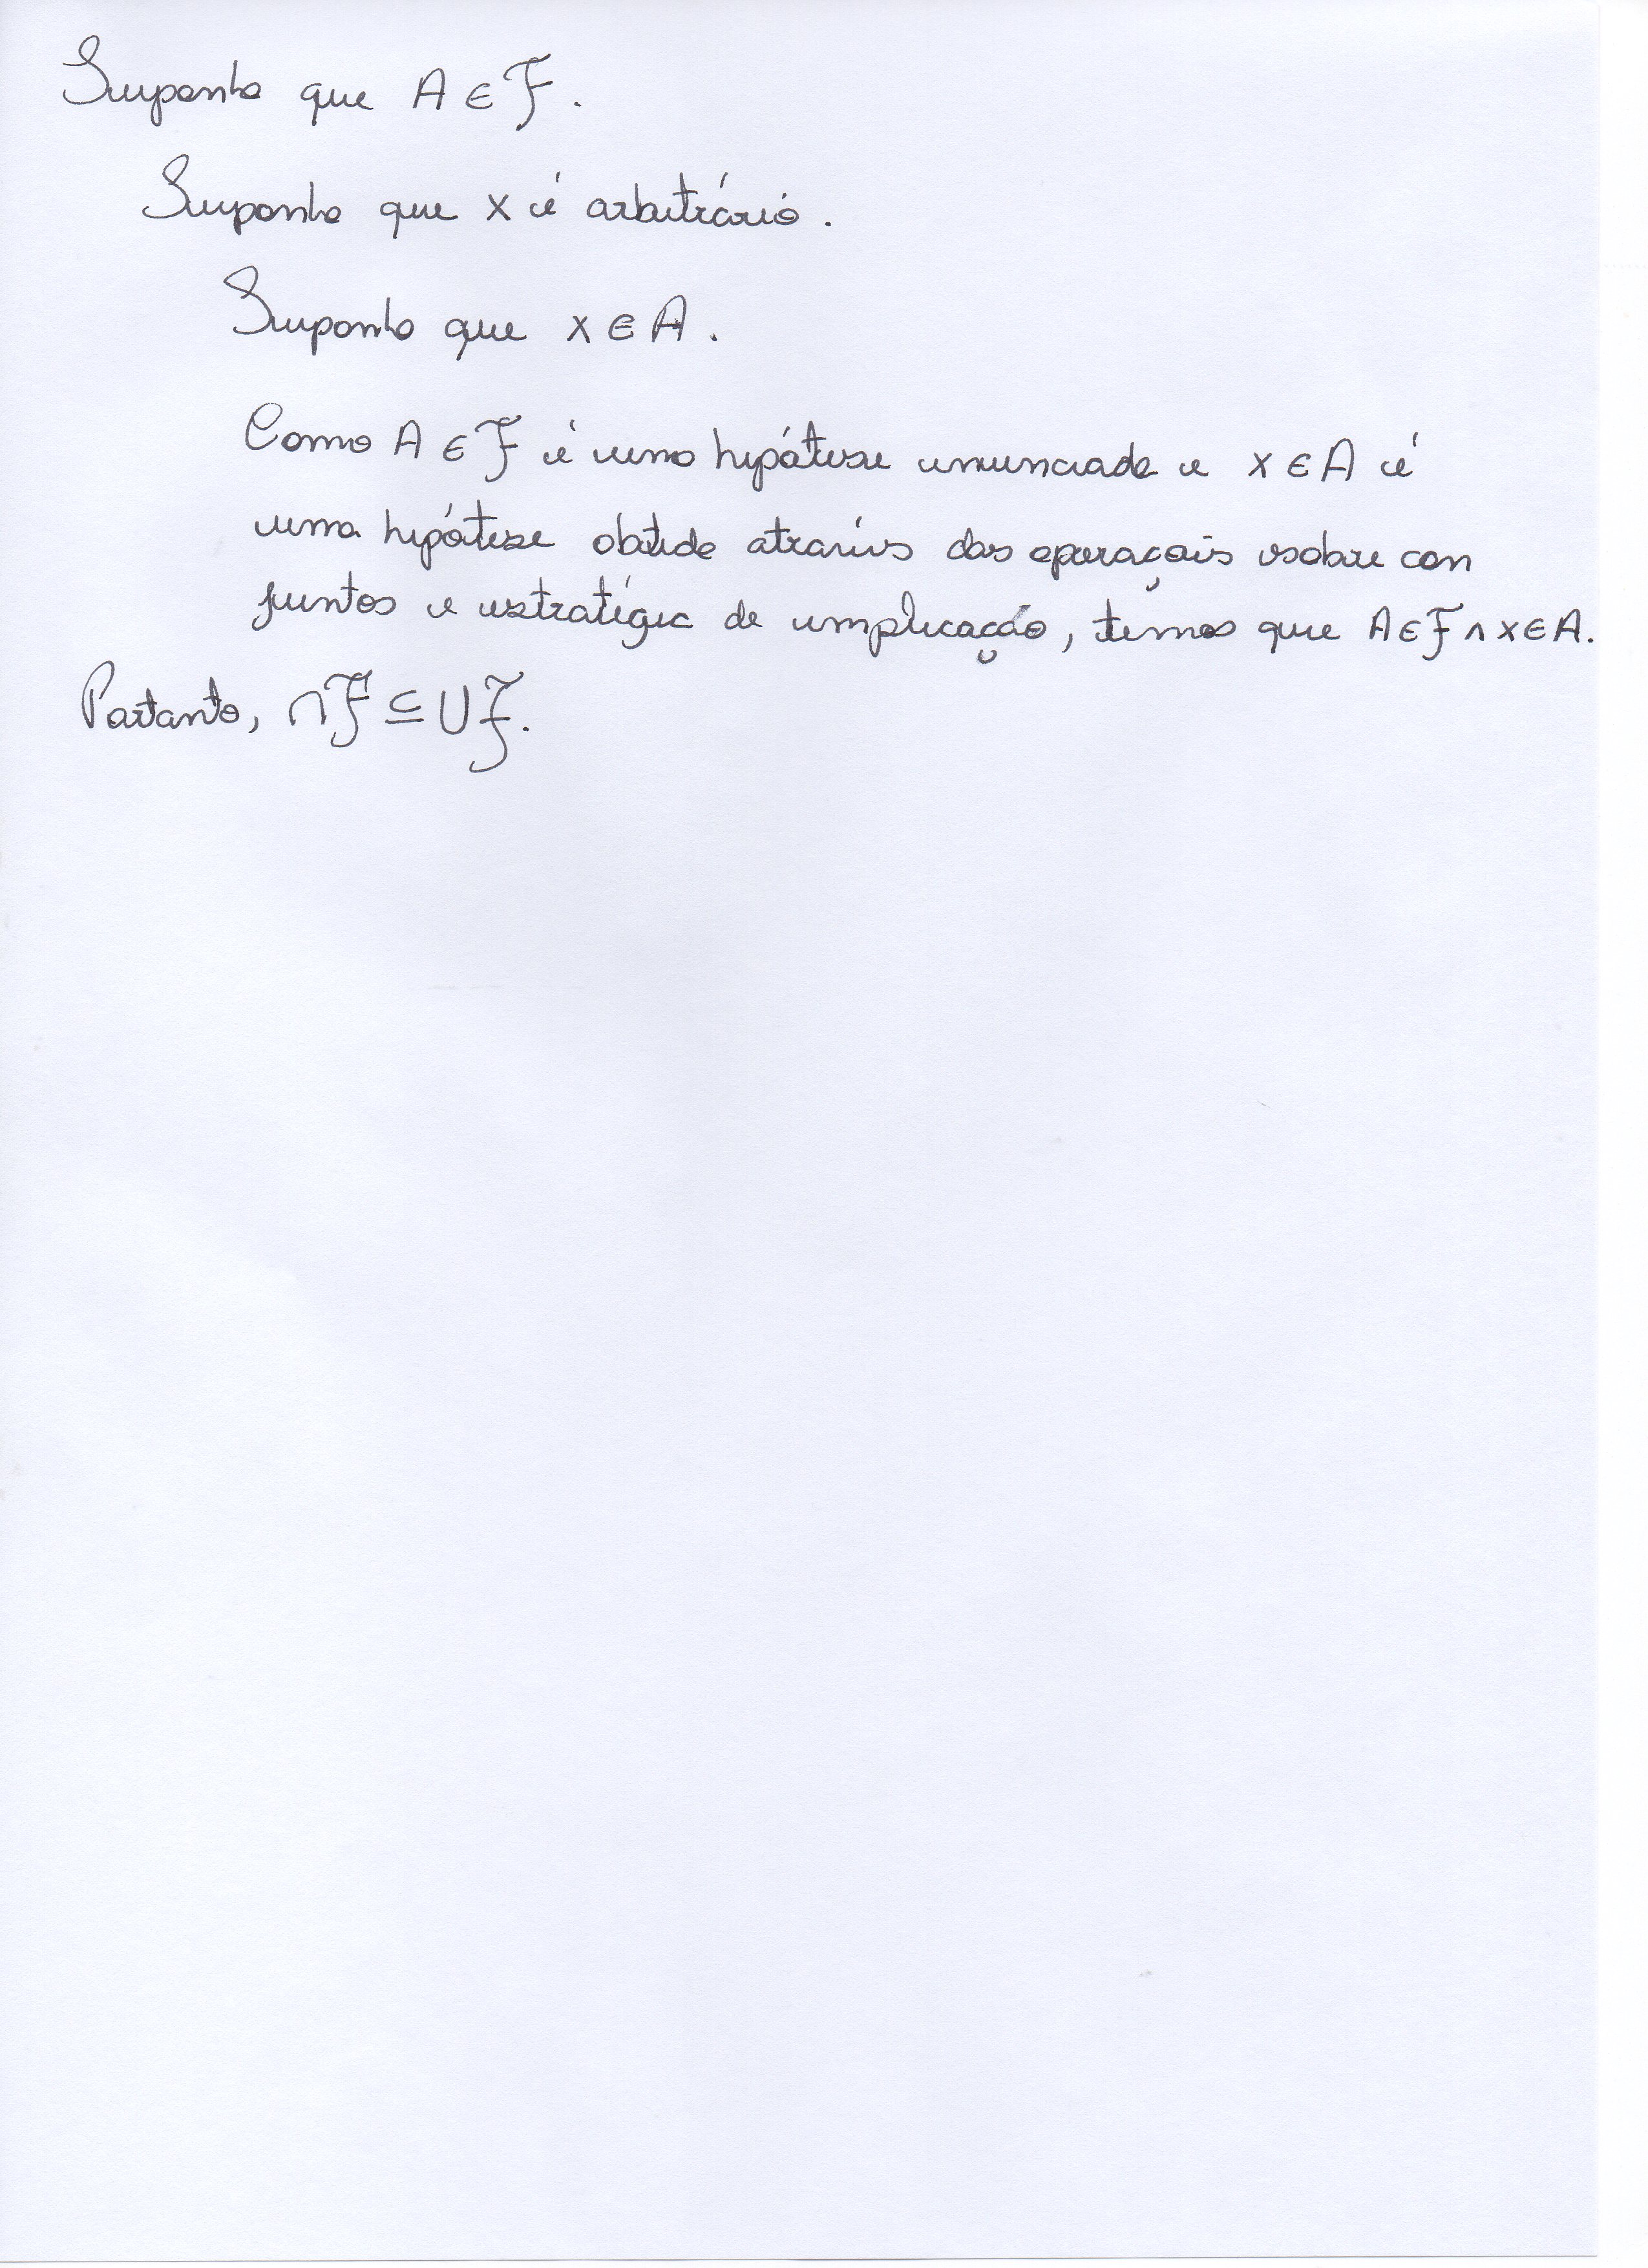 Suponha que A ∈ ℱ.
Suponha que x é arbitrário.
Suponha que x ∈ A.
Como A ∈ ℱ é uma hipótese enunciada e x ∈ A é
uma hipótese obtida através das operações sobre con
juntos e estratégia de implicação, temos que A ∈ ℱ ∧ x ∈ A.
Portanto, ∩ℱ ⊆ ∪ℱ.